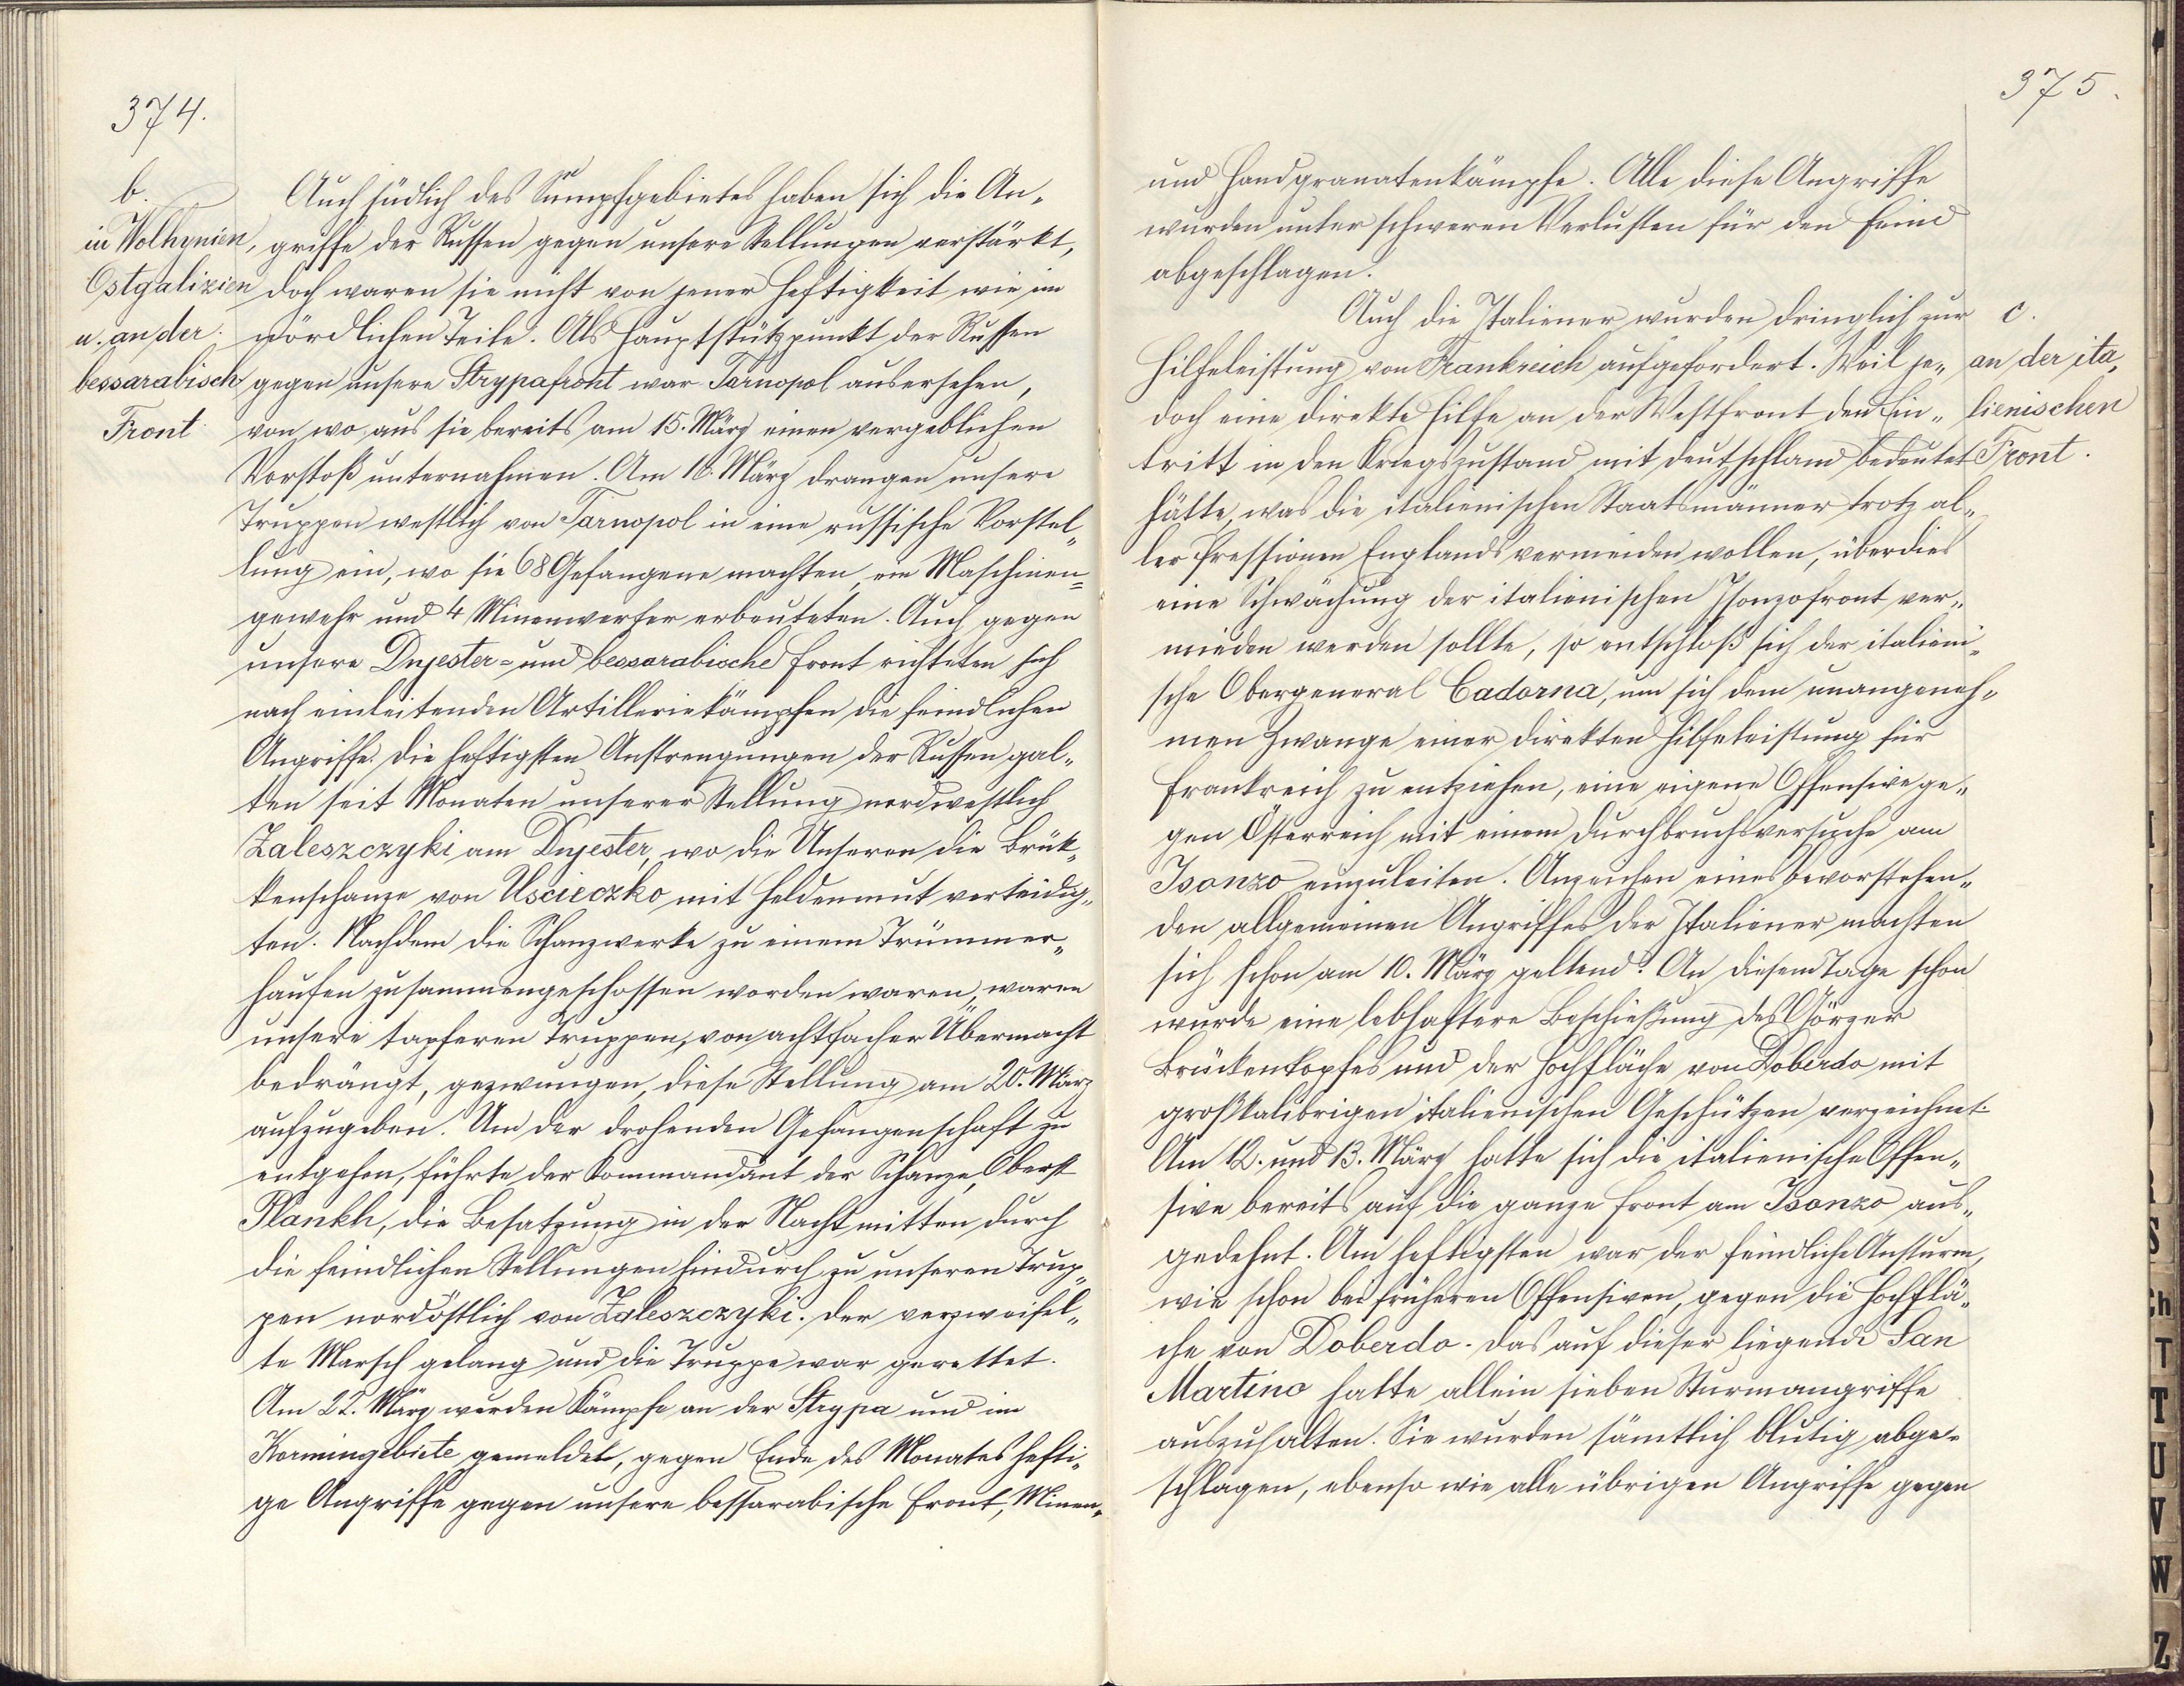 374.
b.
in Wolhynien,
Ostgalizien
u. an der
bessarabisch
Front
Auch südlich des Sumpfgebietes haben sich die An„
griffe der Russen gegen unsere Stellungen verstärkt,
doch waren sie nicht von jener Heftigkeit wie im
nördlichen Teile. Als Hauptstützpunkt der Russen
gegen unsere Strypafront war Tarnopol ausersehen,
von wo aus sie bereits am 15. März einen vergeblichen
Vorstoß unternahmen. Am 18. März drangen unsere
Truppen westlich von Tarnopol in eine russische Vorstel„
lung ein, wo sie 68 Gefangene machten, ein Maschinen=
gewehr und 4 Minenwerfer erbeuteten. Auch gegen
unsere Dnjester= und bessarabische Front richteten sich
nach einleitenden Artilleriekämpfen die feindlichen
Angriffe. Die heftigsten Anstrengungen der Russen gal„
ten seit Monaten unserer Stellung nordwestlich
Zaleszczyki am Dnjester, wo die Unseren die Brük„
kenschanze von Uscieczko mit Heldenmut verteidig„
ten. Nachdem die Schanzwerke zu einem Trümmer„
haufen zusammengeschossen worden waren, waren
unsere tapferen Truppen, von achtfacher Übermacht
bedrängt, gezwungen, diese Stellung am 20. März
aufzugeben. Um der drohenden Gefangenschaft zu
entgehen, führte der Kommandant der Schanze, Oberst
Plankh, die Besatzung in der Nacht mitten durch
die feindlichen Stellungen hindurch zu unseren Trup„
pen nordöstlich von Zaleszczyki. Der verzweifel„
te Marsch gelang und die Truppe war gerettet.
Am 22. März werden Kämpfe an der Strypa und im
Kormingebiete gemeldet, gegen Ende des Monates hefti„
ge Angriffe gegen unsere bessarabische Front, Minen„
375.
und Handgranatenkämpfe. Alle diese Angriffe
wurden unter schweren Verlusten für den Feind
abgeschlagen.
c.
an der ita„
lienischen
Front.
Auch die Italiener wurden dringlich zur
Hilfeleistung von Frankreich aufgefordert. Weil je„
doch eine direkte Hilfe an der Westfront den Ein„
tritt in den Kriegszustand mit Deutschland bedeutet
hätte, was die italienischen Staatsmänner trotz al„
ler Pressionen Englands vermeiden wollen, überdies
eine Schwächung der italienischen Isonzofront ver„
mieden werden sollte, so entschloß sich der italieni„
sche Obergeneral Cadorna, um sich dem unangeneh„
men Zwange einer direkten Hilfeleistung für
Frankreich zu entziehen, eine eigene Offensive ge„
gen Österreich mit einem Durchbruchsversuche am
Isonzo einzuleiten. Anzeichen eines bevorstehen„
den allgemeinen Angriffes der Italiener machten
sich schon am 10. März geltend. An diesem Tage schon
wurde eine lebhaftere Beschießung des Görzer
Brückenkopfes und der Hochfläche von Doberdo mit
großkalibrigen italienischen Geschützen verzeichnet.
Am 12. und 13. März hatte sich die italienische Offen„
sive bereits auf die ganze Front am Isonzo aus„
gedehnt. Am heftigsten war der feindliche Ansturm,
wie schon bei früheren Offensiven, gegen die Hochflä„
che von Doberdo. Das auf dieser liegende San
Martino hatte allein sieben Sturmangriffe
auszuhalten. Sie wurden sämtlich blutig abge„
schlagen, ebenso wie alle übrigen Angriffe gegen
S
Ch
T
T
U
V
W
Z